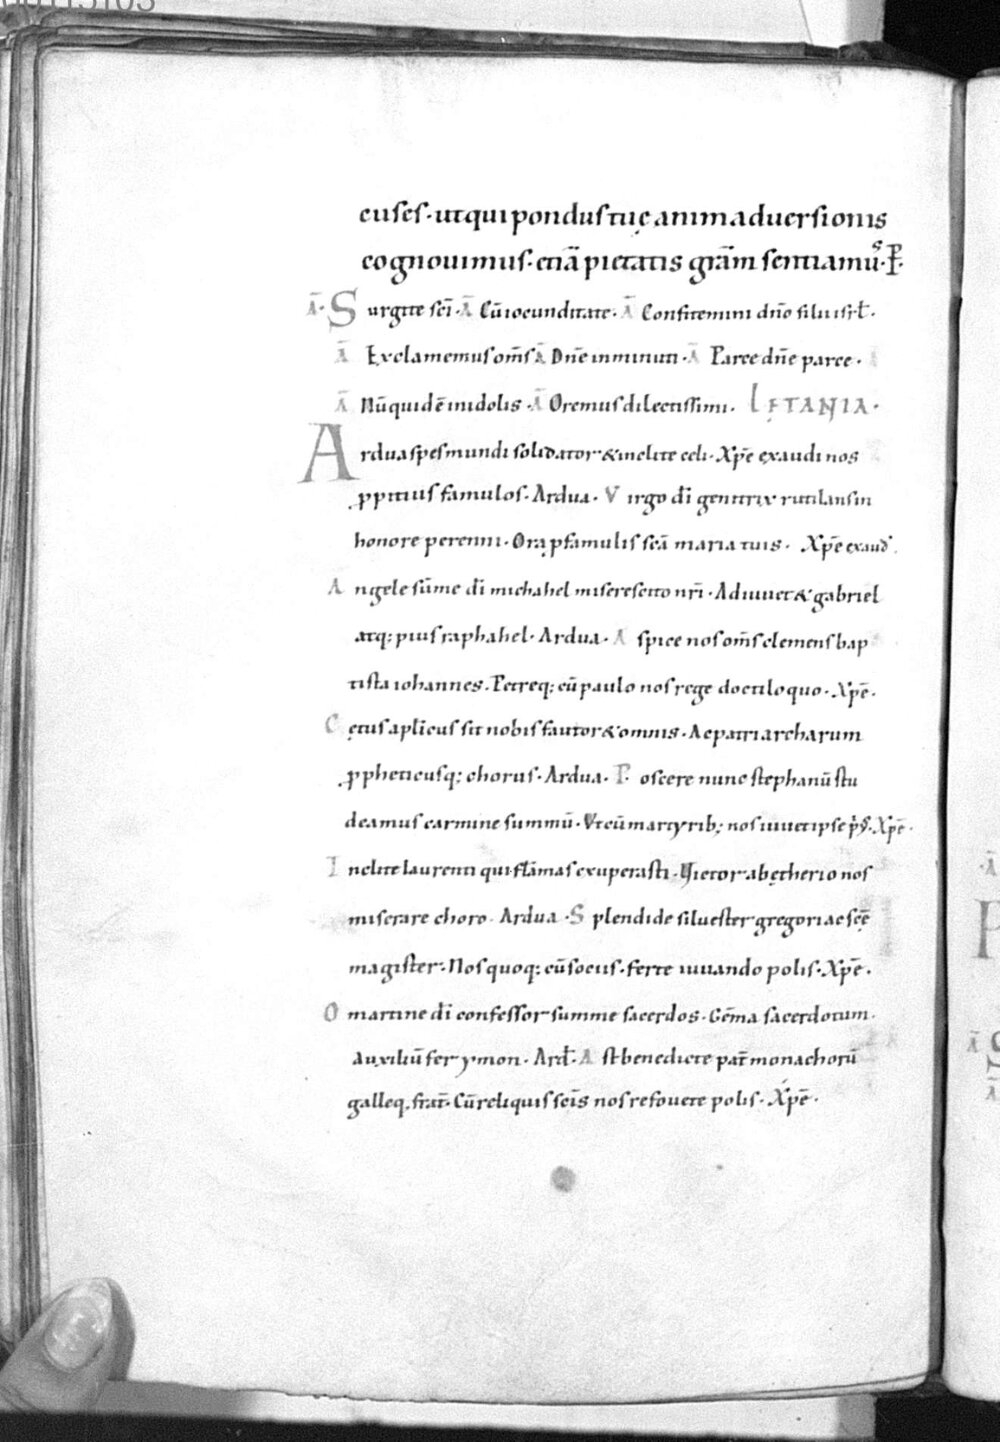 cuses · ut qui pondus tuę animaduersionis
cognouimus · etiā pietatis grām sentiamuꝰ · P̄ ·
Ā · Surgite sc̄i · Ā Cū iocunditate · Ā Confitemini dn̄o filii isrł ·
Ā Exclamemus om̄s Ā Dn̄e inminuti · Ā Parce dn̄e parce ·
Ā Nūquid ē in idolis · Ā Oremus dilectissimi · LĘTANIA ·
Ardua spes mundi solidator & inclite celi · Xp̄e exaudi nos
ꝓpitius famulos · Ardua · Virgo dī genitrix rutilans in
honore perenni · Ora ꝓ famulis sc̄a maria tuis · Xp̄e exaud̄ ·
Angele sūme dī michahel miseresccito nr̄i · Adiuuet & gabriel
atq; pius raphahel · Ardua · Aspice nos om̄s clemens bap
tista iohannes · Petreq; cū paulo nos rege doctiloquo · Xp̄e ·
Cętus apl̄icus sit nobis fautor & omnis · Ac patriarcharum
ꝓpheticusq; chorus · Ardua · Poscere nunc stephanū stu
deamus carmine summū · Vt cū martyrib; nos iuuet ipse p̄s · Xp̄e ·
Inclite laurenti qui flāmas exuperasti · Victor ab ętherio nos
miserare choro · Ardua · Splendide siluester gregori ac sc̄ę
magister · Nos quoq; cū sociis · ferte iuuando polis · Xp̄e ·
O martine dī confessor summe sacerdos · Gēma sacerdotum ·
Auxiliū fer ymon · Ard̄ · Ast benedicte pat̄ monachorū
galleq, frat̄ · Cū reliquis sc̄is nos refouete polis · Xp̄e ·